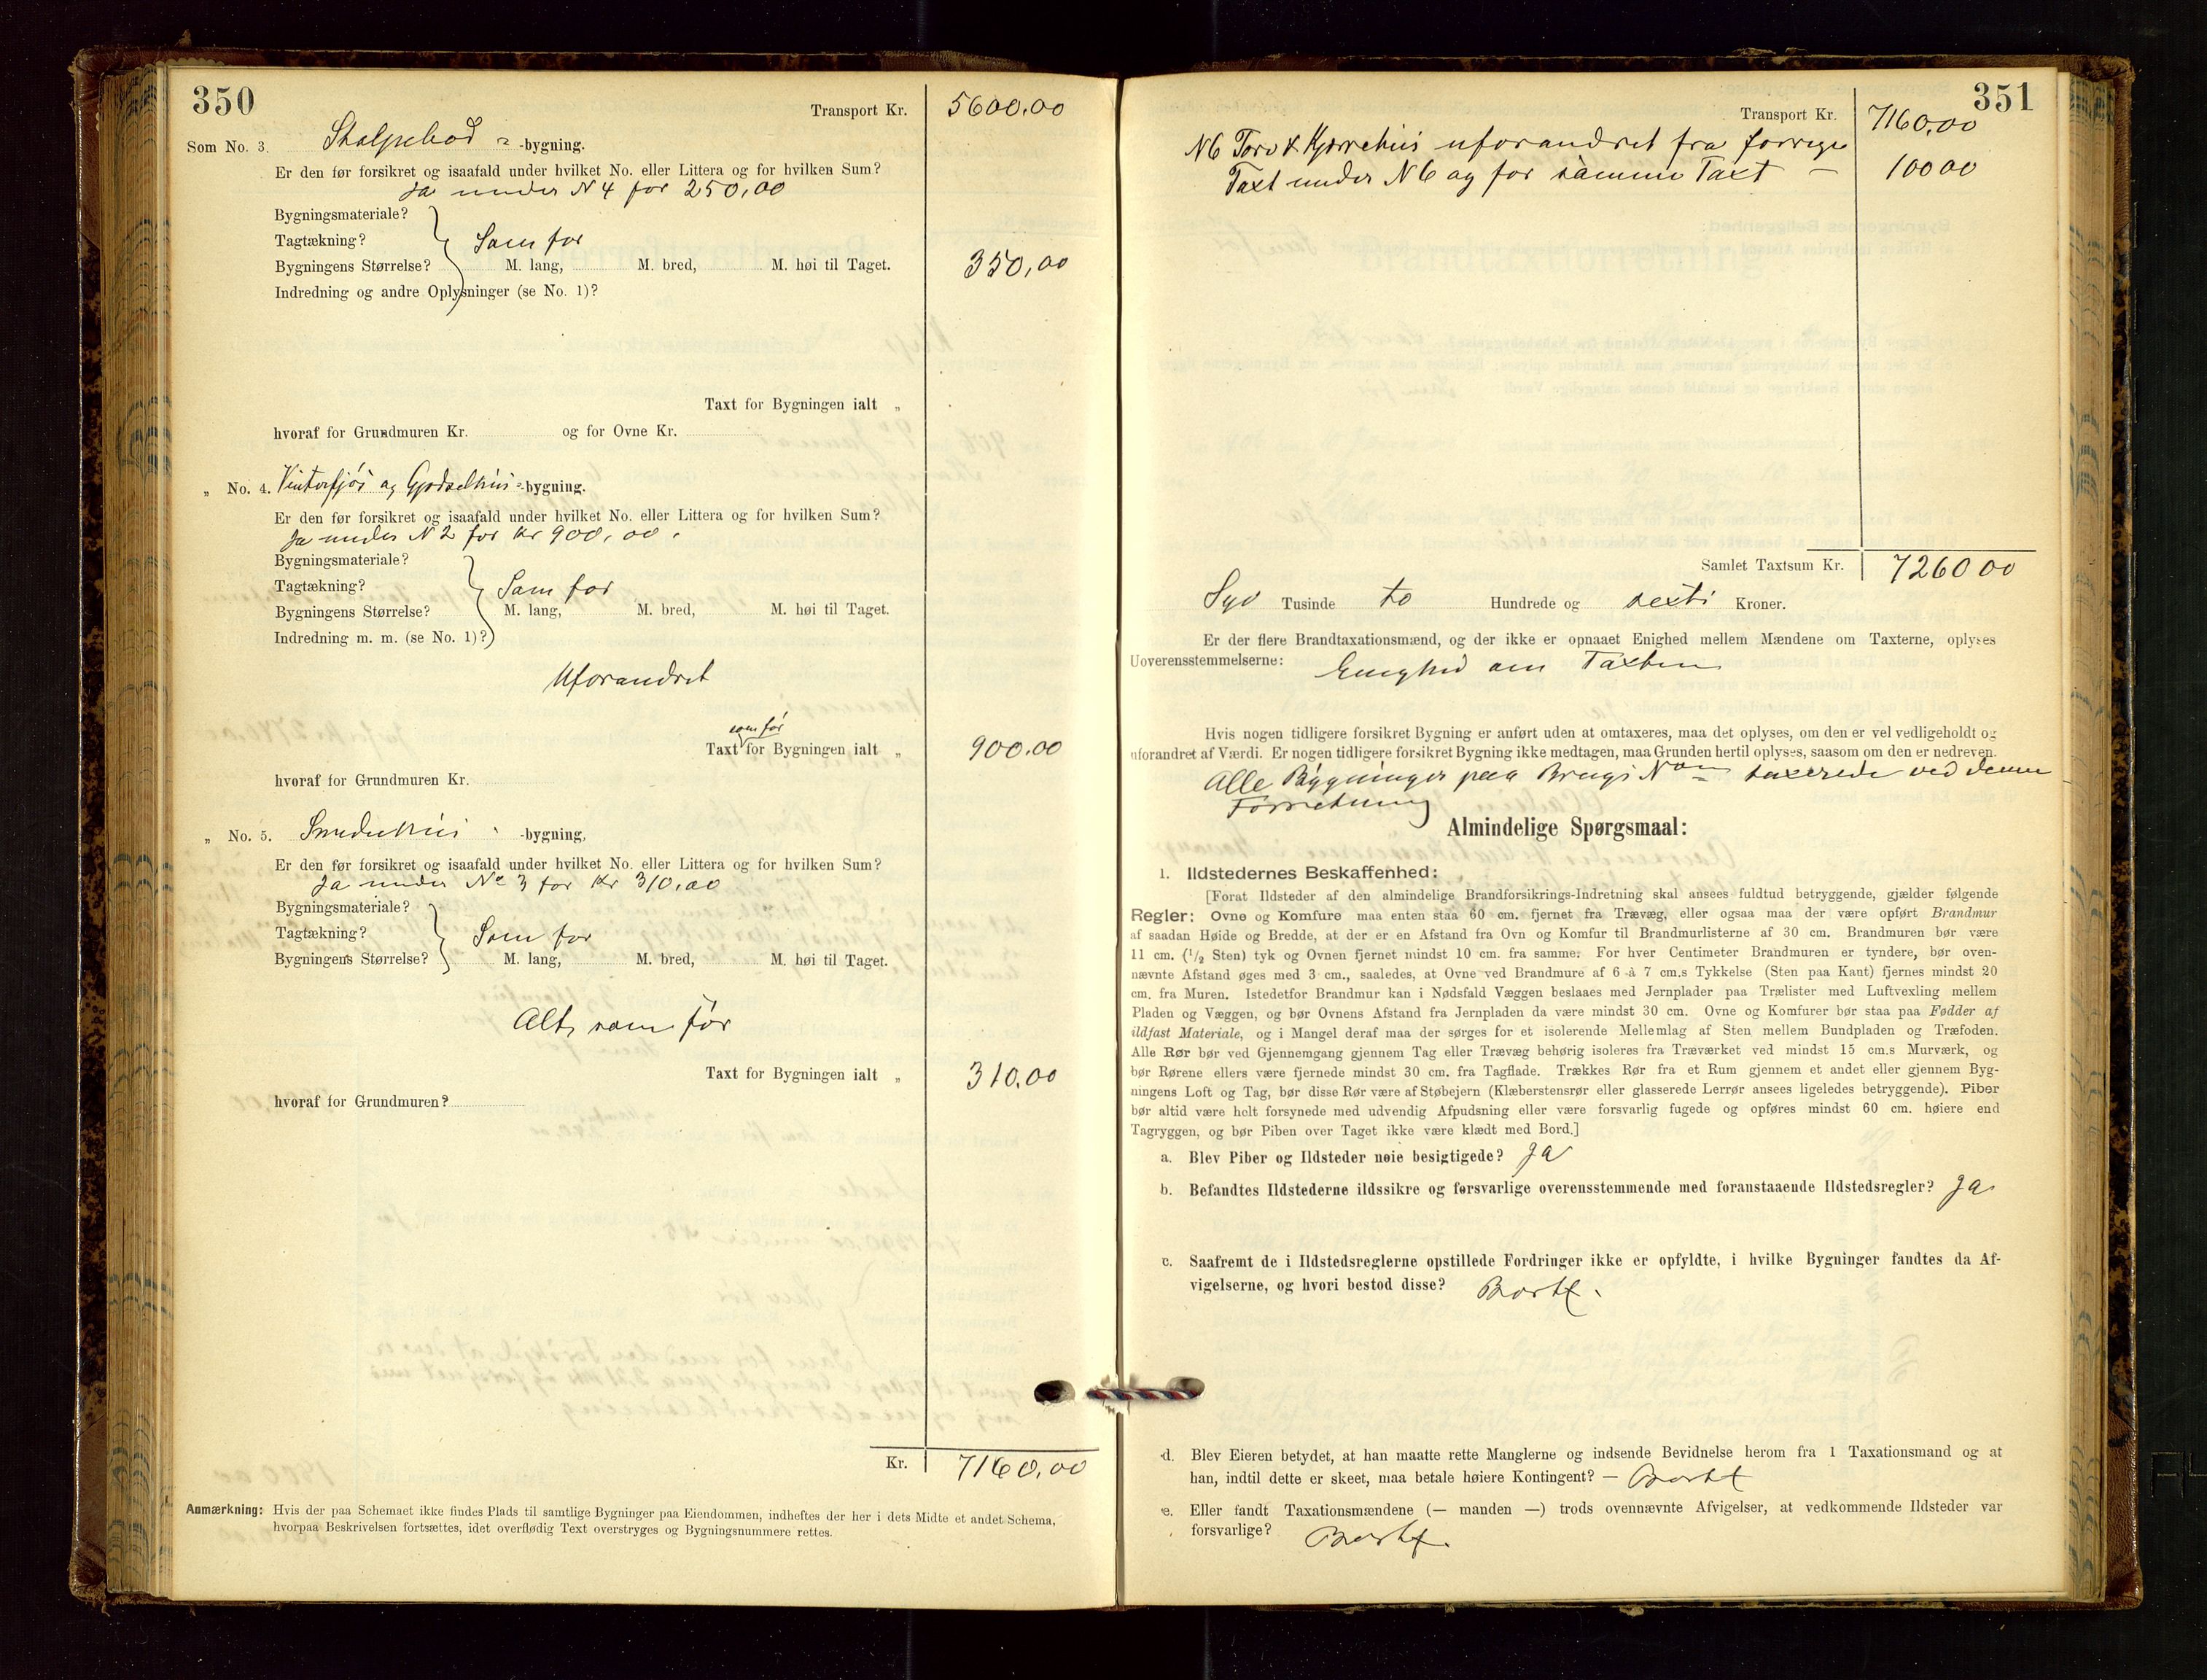 350
Transport Kr. 5600,00
Som No. 3. Stolpebod -bygning.
Er den før forsikret og isaafald under hvilket No. eller Littera og for hvilken Sum?
Ja under N 4 for 250,00
Bygningsmateriale?
Tagtækning? Som før
Bygningens Størrelse? M. lang, M. bred, M. høi til Taget. 350,00
Indredning og andre Oplysninger (se No. 1)?
Taxt for Bygningen ialt „
hvoraf for Grundmuren Kr. og for Ovne Kr.
„ No. 4. Vinterfjøs og Gjødselhus -bygning.
Er den før forsikret og isaafald under hvilket No. eller Littera og for hvilken Sum?
Ja under N 2 for Kr 900,00.
Bygningsmateriale?
Tagtækning? Som før
Bygningens Størrelse? M. lang, M. bred, M. høi til Taget.
Indredning m. m. (se No. 1)?
Uforandret
som før
Taxt for Bygningen ialt „ 900.00
hvoraf for Grundmuren Kr.
„ No. 5. Smedehus -bygning,
Er den før forsikret og isaafald under hvilket No. eller Littera og for hvilken Sum?
Ja under No 3 for Kr 310,00
Bygningsmateriale?
Tagtækning? Som før
Bygningens Størrelse? M. lang, M. bred, M. høi til Taget.
Alt som før
Taxt for Bygningen ialt „ 310.00
hvoraf for Grundmuren?
Kr. 7160,00
Anmærkning: Hvis der paa Schemaet ikke findes Plads til samtlige Bygninger paa Eiendommen, indheftes der her i dets Midte et andet Schema,
hvorpaa Beskrivelsen fortsættes, idet overflødig Text overstryges og Bygningsnummere rettes.
351
Transport Kr. 7160,00
N 6 Torv & Kjærrehus uforandret fra forrige
Taxt under N 6 og for samme Taxt — 100 00
Samlet Taxtsum Kr. 7260 00
Syv Tusinde to Hundrede og sexti Kroner.
Er der flere Brandtaxationsmænd, og der ikke er opnaaet Enighed mellem Mændene om Taxterne, oplyses
Uoverensstemmelserne: Enighed om Taxten
Hvis nogen tidligere forsikret Bygning er anført uden at omtaxeres, maa det oplyses, om den er vel vedligeholdt og
uforandret af Værdi. Er nogen tidligere forsikret Bygning ikke medtagen, maa Grunden hertil oplyses, saasom om den er nedreven.
Alle Bygninger paa Brugs taxerede ved denne
Forretning
Almindelige Spørgsmaal:
1. Ildstedernes Beskaffenhed:
[Forat Ildsteder af den almindelige Brandforsikrings-Indretning skal ansees fuldtud betryggende, gjælder følgende
Regler: Ovne og Komfure maa enten staa 60 cm. fjernet fra Trævæg, eller ogsaa maa der være opført Brandmur
af saadan Høide og Bredde, at der er en Afstand fra Ovn og Komfur til Brandmurlisterne af 30 cm. Brandmuren bør være
11 cm. (1/2 Sten) tyk og Ovnen fjernet mindst 10 cm. fra samme. For hver Centimeter Brandmuren er tyndere, bør oven-
nævnte Afstand øges med 3 cm., saaledes, at Ovne ved Brandmure af 6 à 7 cm.s Tykkelse (Sten paa Kant) fjernes mindst 20
cm. fra Muren. Istedetfor Brandmur kan i Nødsfald Væggen beslaaes med Jernplader paa Trælister med Luftvexling mellem
Pladen og Væggen, og bør Ovnens Afstand fra Jernpladen da være mindst 30 cm. Ovne og Komfurer bør staa paa Fødder af
ildfast Materiale, og i Mangel deraf maa der sørges for et isolerende Mellemlag af Sten mellem Bundpladen og Træfoden.
Alle Rør bør ved Gjennemgang gjennem Tag eller Trævæg behørig isoleres fra Træværket ved mindst 15 cm.s Murværk, og
bør Rørene ellers være fjernede mindst 30 cm. fra Tagflade. Trækkes Rør fra et Rum gjennem et andet eller gjennem Byg-
ningens Loft og Tag, bør disse Rør være af Støbejern (Klæberstensrør eller glasserede Lerrør ansees ligeledes betryggende). Piber
bør altid være helt forsynede med udvendig Afpudsning eller være forsvarlig fugede og opføres mindst 60 cm. høiere end
Tagryggen, og bør Piben over Taget ikke være klædt med Bord.]
a. Blev Piber og Ildsteder nøie besigtigede? Ja
b. Befandtes Ildstederne ildssikre og forsvarlige overensstemmende med foranstaaende Ildstedsregler? Ja
c. Saafremt de i Ildstedsreglerne opstillede Fordringer ikke er opfyldte, i hvilke Bygninger fandtes da Af-
vigelserne, og hvori bestod disse? Bortf.
d. Blev Eieren betydet, at han maatte rette Manglerne og indsende Bevidnelse herom fra 1 Taxationsmand og at
han, indtil dette er skeet, maa betale høiere Kontingent? — Bortf
e. Eller fandt Taxationsmændene (— manden —) trods ovennævnte Afvigelser, at vedkommende Ildsteder var
forsvarlige? Bortf.